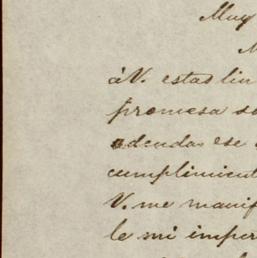 Muy
á V. estas lin
promesa s
adeudas ese
cumplimient
V. me manif
le mi imper